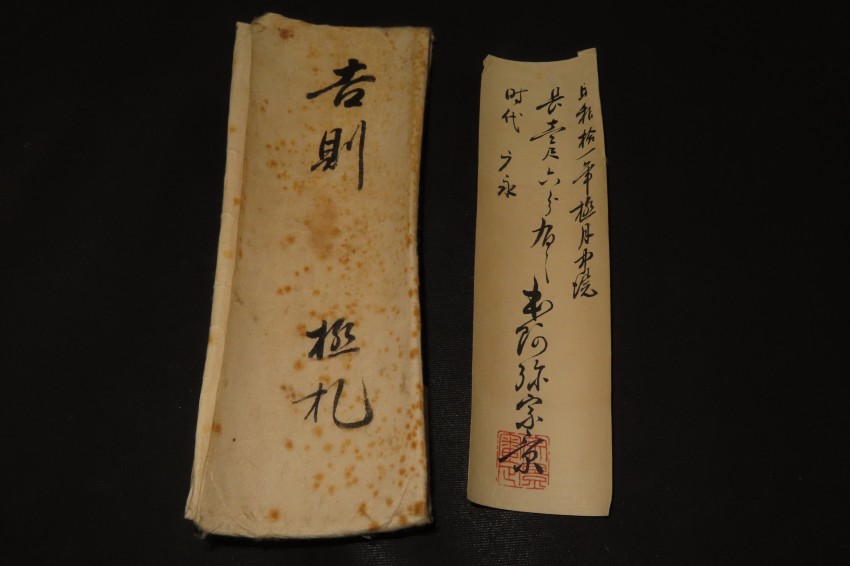 𠮷則 極札
昭和拾一年極月中浣
長壹尺六分有之 本阿弥宗景
时代 応永